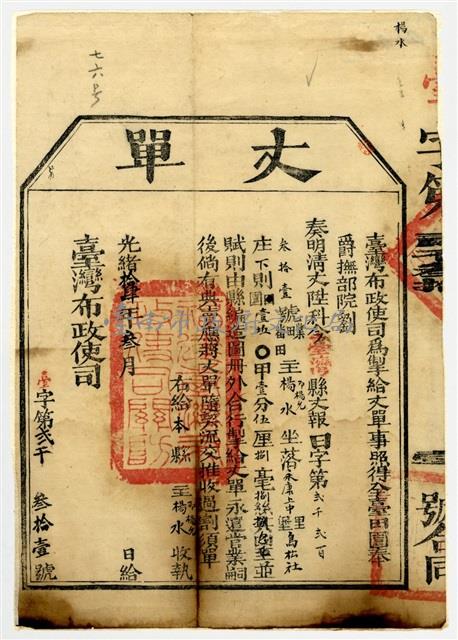 楊水
七六号
丈單
臺灣布政使司為掣給丈單事照得全臺田園奉
爵撫部院劉
奏明清丈陞科臺灣縣丈報日字第貳千貳百
叁拾壹號縣田主楊水坐落永康上中里蔦松社
庄下則園壹坵〇甲壹分伍厘捌毫捌絲並
賦則由縣編造圖冊外合行掣給丈單永遠管業嗣
後倘有典賣應將丈單隨契流交推收過割須單
右給本縣主楊水收執
光緒拾肆年叁月日給
臺灣布政使司
臺字第貳千叁拾壹號
字第
號合同